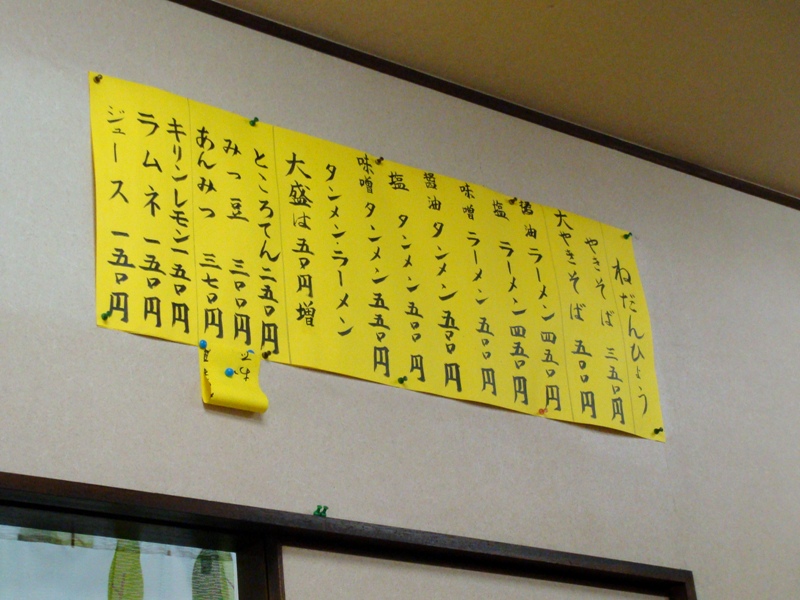 ねだんひょう
やきそば 三五〇円
大やきそば 五〇〇円
醤油ラーメン 四五〇円
塩ラーメン 四五〇円
味噌ラーメン 五〇〇円
醤油タンメン 五〇〇円
塩タンメン 五五〇円
味噌タンメン 五五〇円
タンメン・ラーメン
大盛は五〇円増
ところてん 二五〇円
みつ豆 三〇〇円
あんみつ 三七〇円
キリンレモン 一五〇円
ラムネ 一五〇円
ジュース 一五〇円